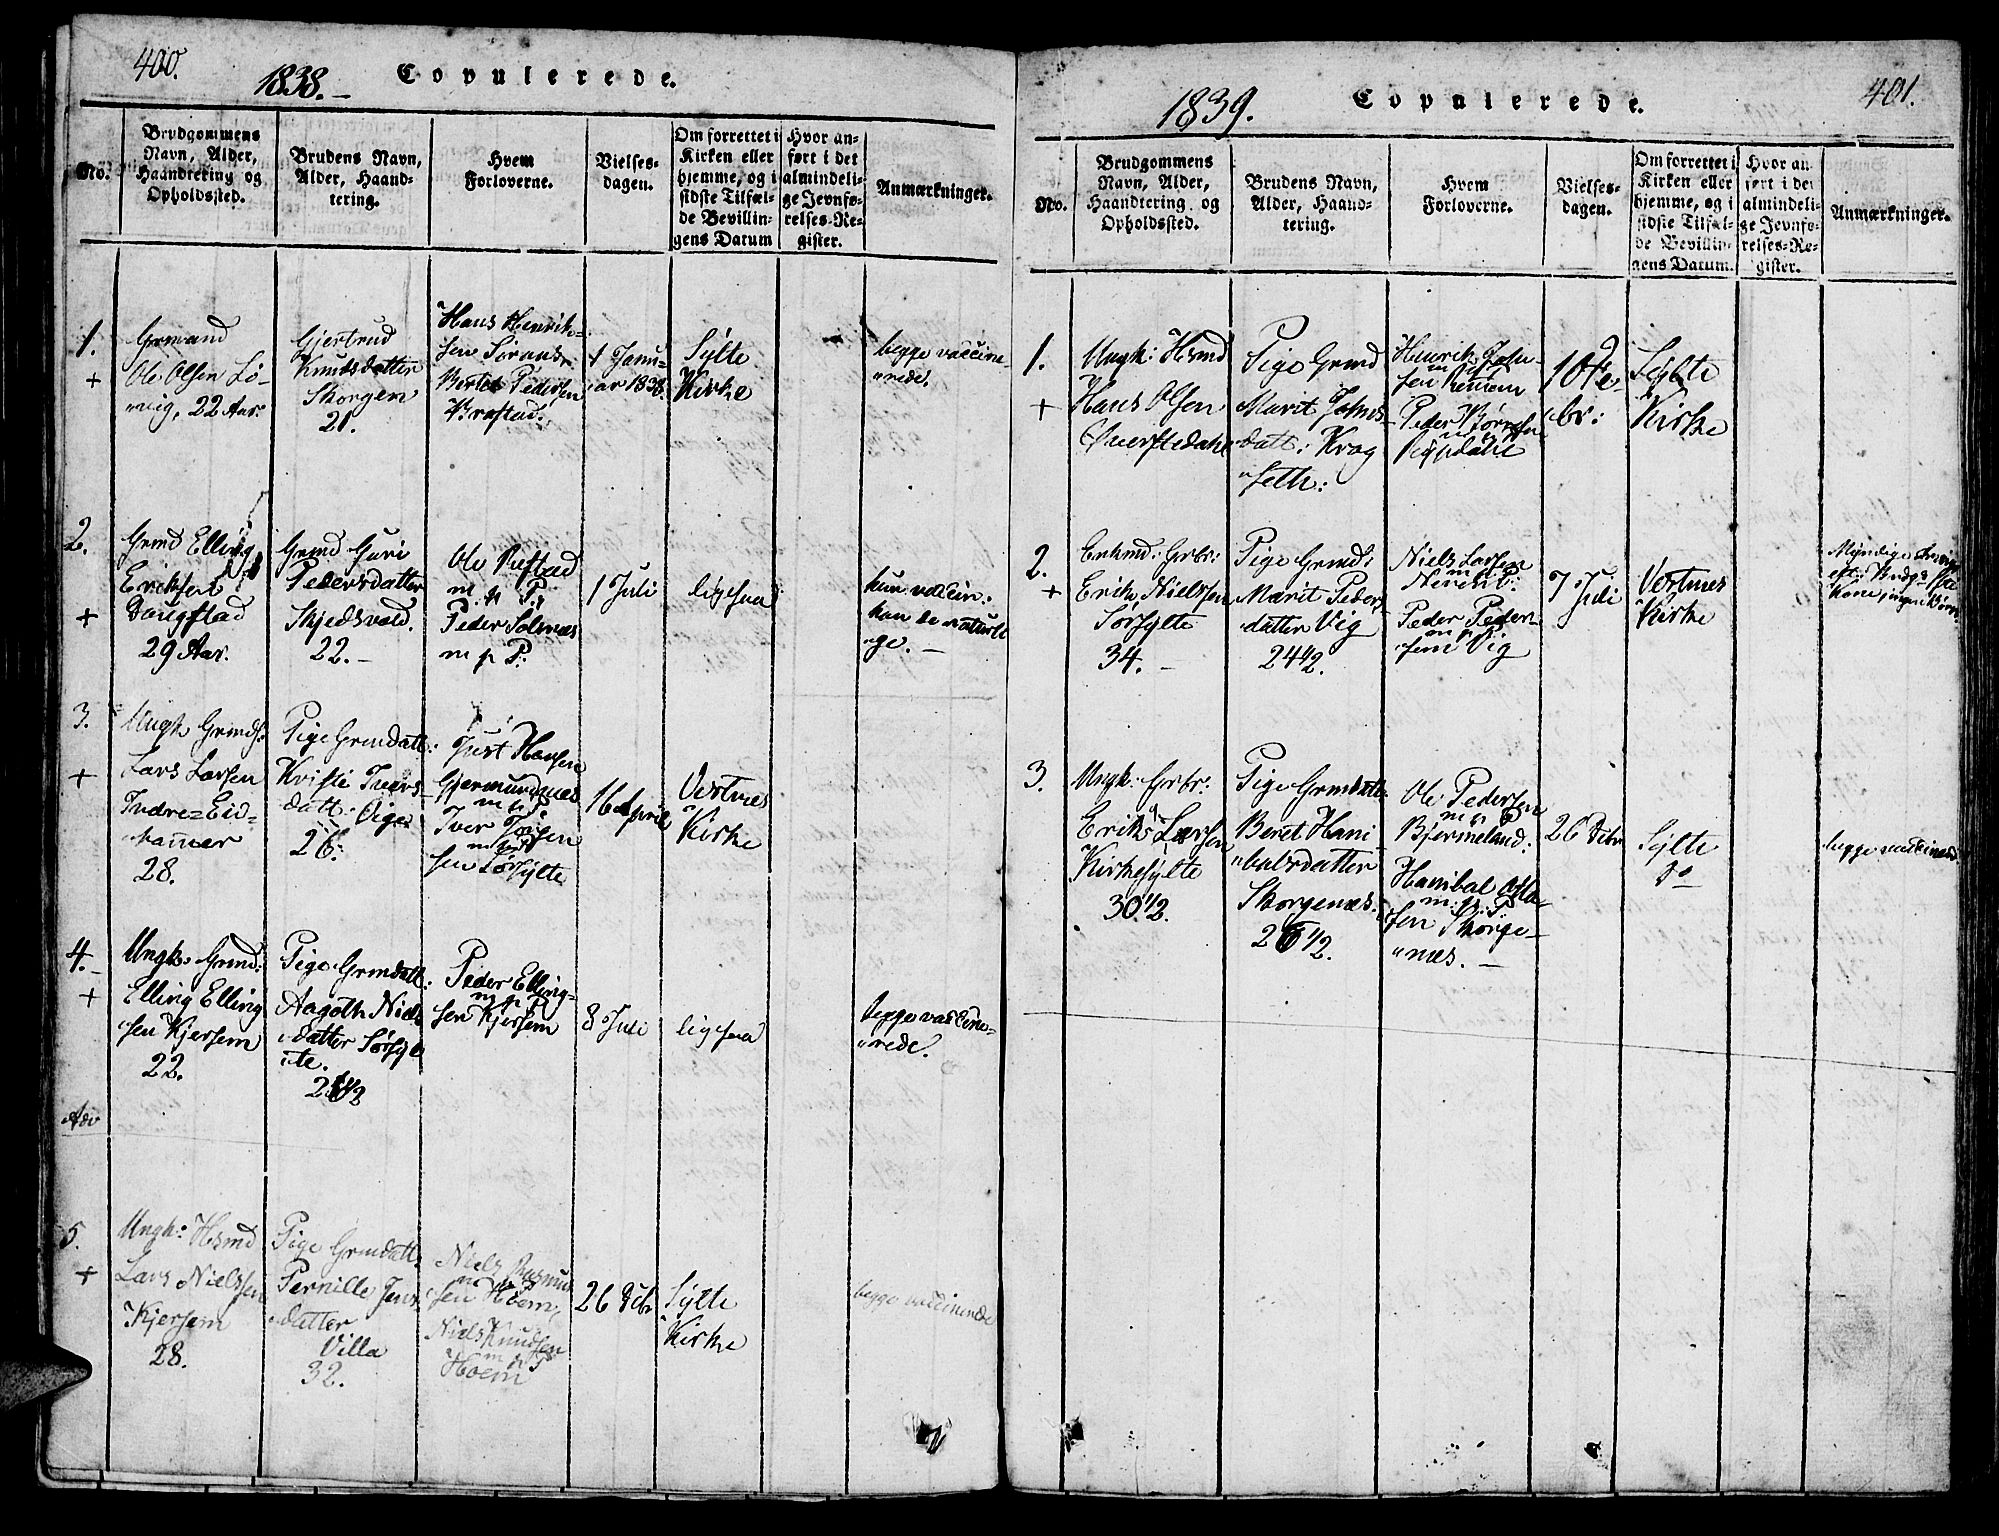 400.
1838.–
Copulerede.
No.
Brudgommens
Navn, Alder,
Haandtering og
Opholdssted.
Brudens Navn,
Alder, Haand-
tering.
Hvem
Forloverne.
Vielses-
dagen.
Om forrettet i
Kirken eller
hjemme, og i
sidste Tilfæl-
de Bevillin-
gens Datum
Hvor an-
ført i det
almindeli-
ge Jevnfø-
relses-Re-
gister.
Anmærkninger.
1.
+
Grmand
Ole Olsen Lø-
vig, 22 Aar.
Gjertrud
Knudsdatter
Skorgen
21.
Hans Henrik-
sen
Pedersen
1 Janu-
ar 1838.
Sylte
Kirke
begge vaccine
rede.
2.
+
Grmd Elling
Eriksen
Dougstad
29 Aar.
Grmd Guri
Pedersdatter
Skjedsvold.
22.–
Ole
m. p. P.
Peder Solnæs
m p P.
1 Juli
ligesaa
hun vaccin:
han de naturli
ge. –
3.
+
Ungk Grmds:
Lars Larsen
Indre=Eid-
hammer
28.
Pige Grmdatt:
Kristi Ivers
datt:
26.
Just Hansen
Gjermundnæs
m p P
Iver
sen Sørsylte
16 April
Vestnes
Kirke
4.–
+
Ungk: Grmd:
Elling Elling
sen Kjersem
22.
Pige Grmdatt:
Aagoth Niels
datter Sørsyl
te.
Peder Elling-
m p P
sen Kjersem
8 Juli
ligesaa
begge vaccine-
rede.
5.
+
Ungk: Hsmd
Lars Nielssen
Kjersem
28.
Pige Grmdatt.
Pernille Jens
datter
Villa
32.
Niels Rasmus
m p P
sen Hoem,
Niels Knudsen
m p P
Hoem
26 Octbr
Sylte
Kirke
begge vaccinerede
1839.
Copulerede.
401.
No.
Brudgommens
Navn, Alder,
Haandtering og
Opholdssted.
Brudens Navn,
Alder, Haand-
tering.
Hvem
Forloverne.
Vielses-
dagen.
Om forrettet i
Kirken eller
hjemme, og i
sidste Tilfæl-
de Bevillin-
gens Datum.
Hvor an-
ført i det
almindeli-
ge Jevnfø-
relses-Re-
gister.
Anmærkninger.
1.
+
Ungk: Hsmd
Hans Olsen
Øverstedahl
Pige Grmd
Marit Johns
datt: Krog
seth:
Henrik John-
sen
Peder
Sylte
Kirke
2.
+
Enkmd: Grbr:
Erik Nielssen
Sørsylte
34. –
Pige Grmd:
Marit Peders
datter Vig
24 1/2.
Niels Larsen
m p P
Peder Peder
m p P
sen Vig
7 Juli
Vestnes
Kirke
3.
Ungk: Grbr:
Erik Larsen
Kirkesylte
30 1/2.
Pige Grmdatt:
Beret Hani
balsdatter
Skorgenæs.
Ole Pedersen
m p P
Bjermeland:
Hanibal
m. p. P
sen Skorge-
næs. –
26 Octbr
Sylte
do
begge vaccinered